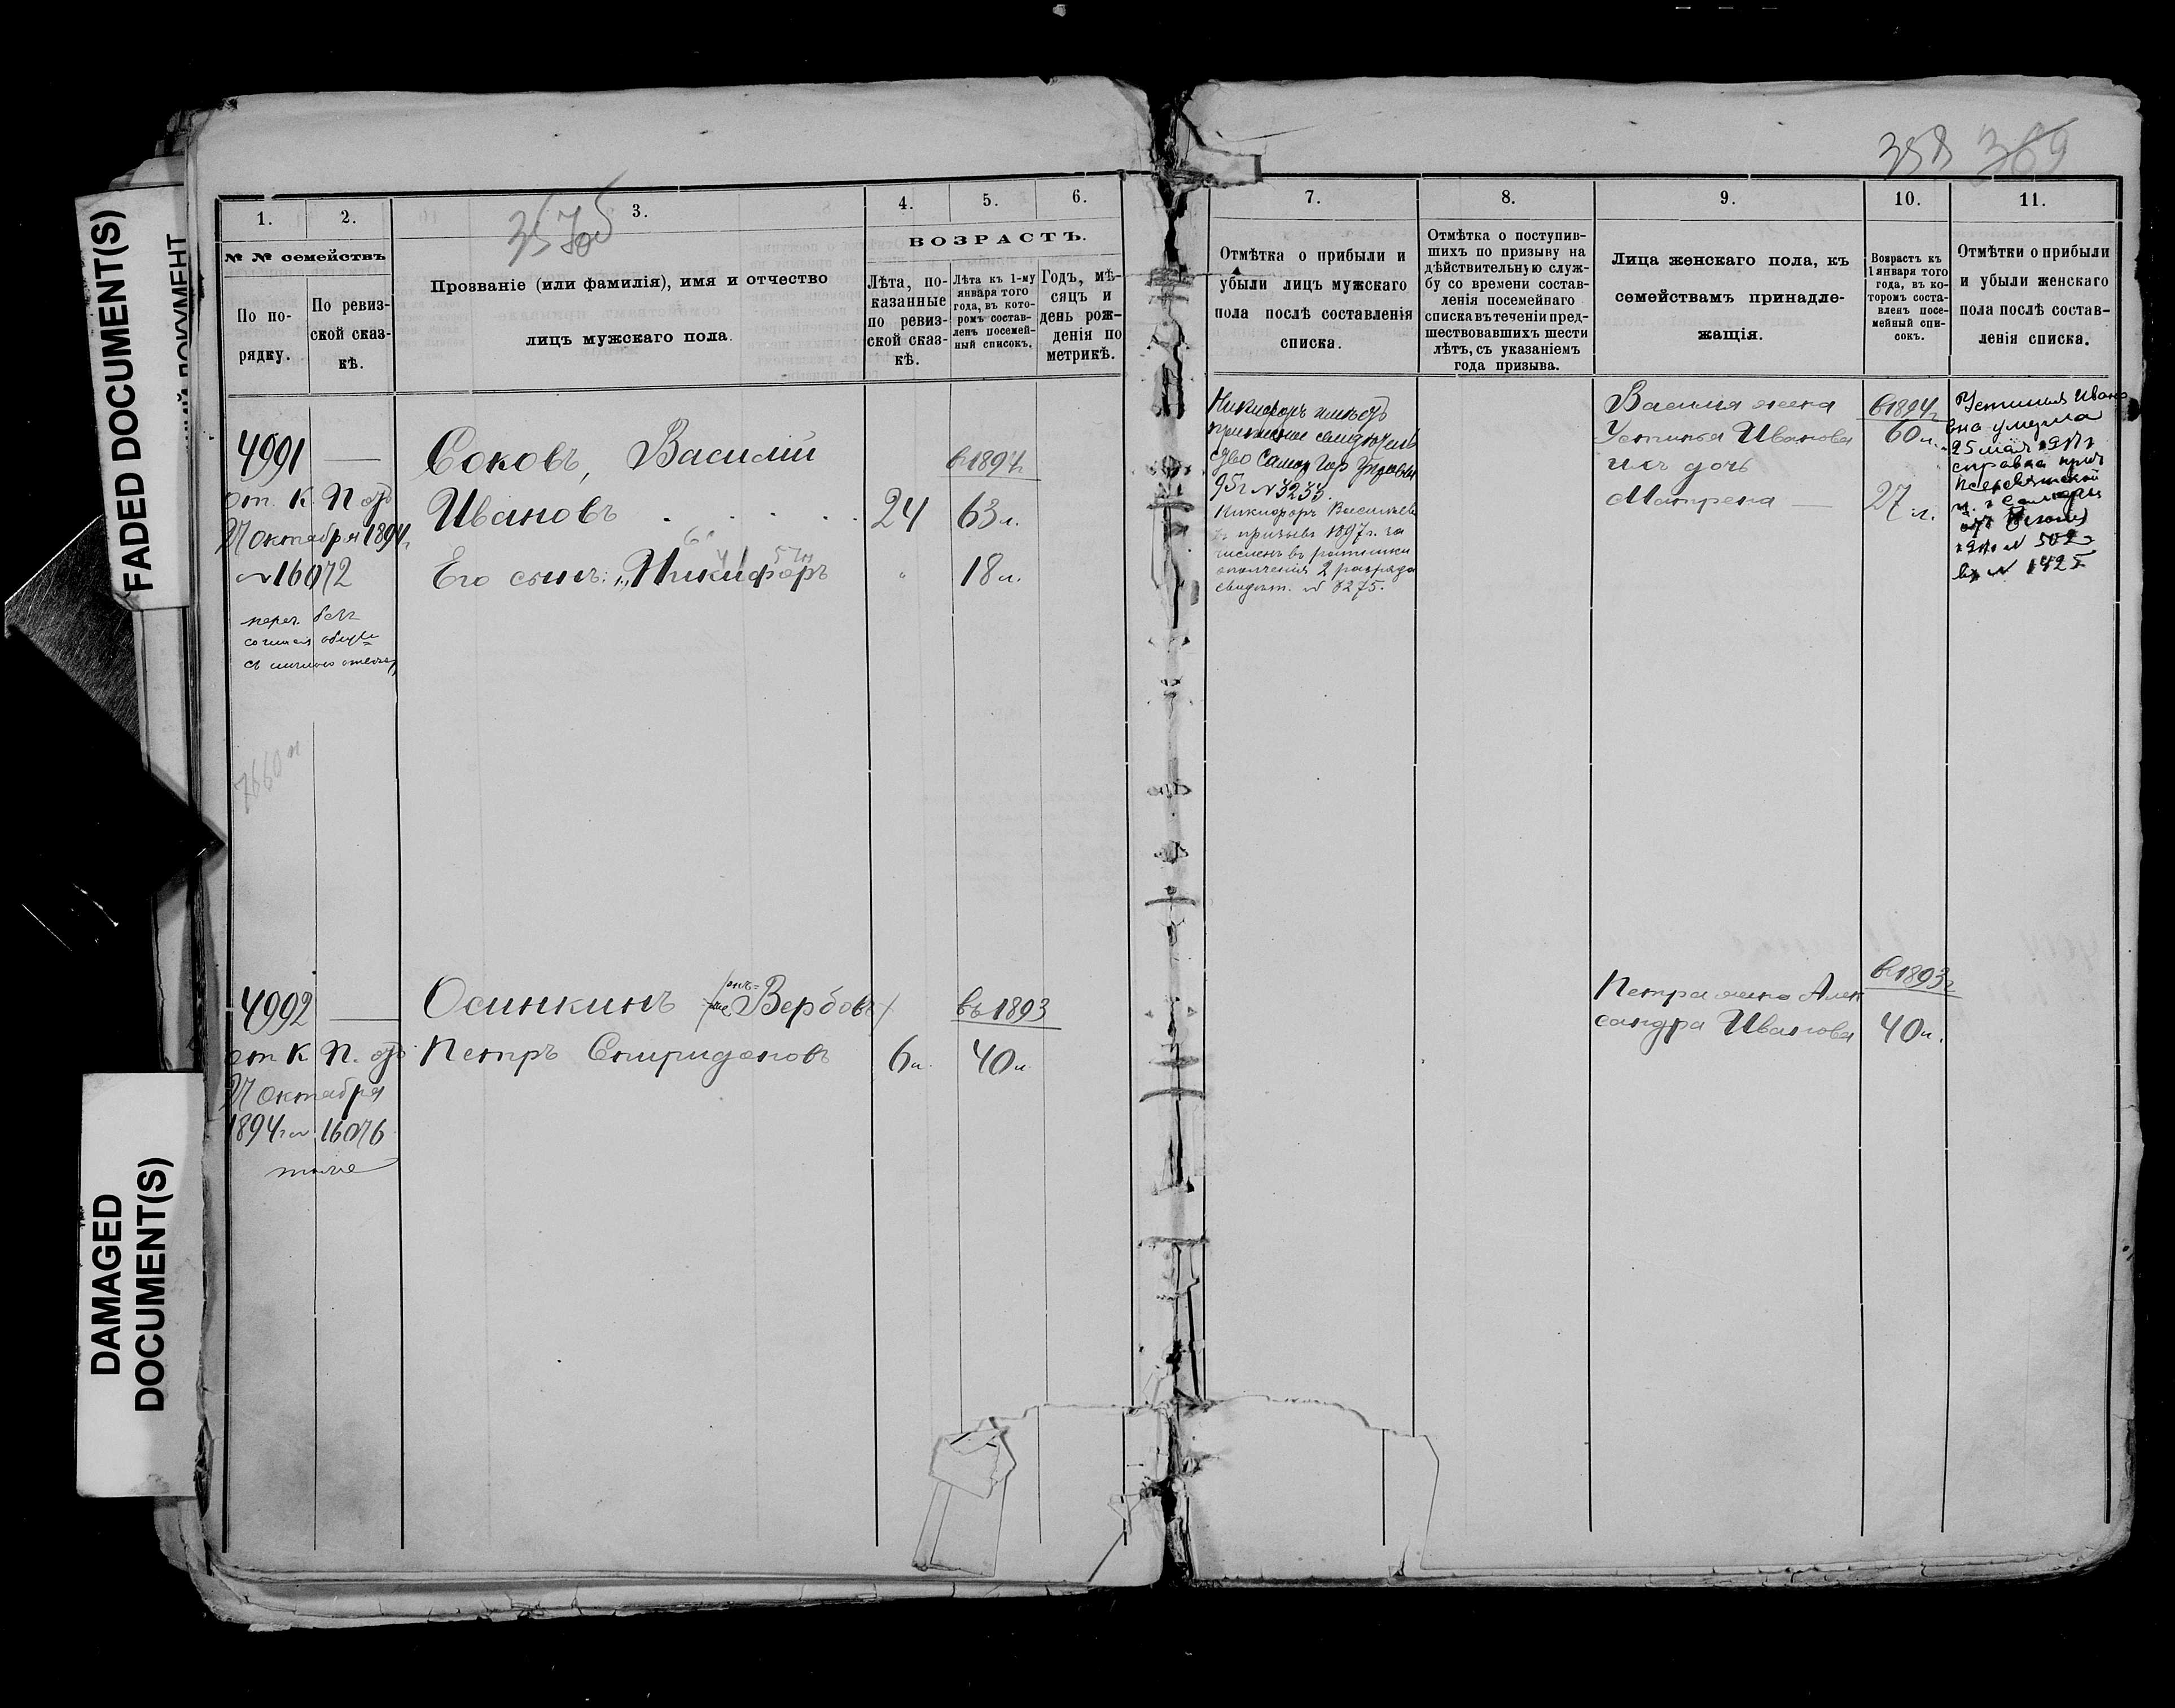 FADED DOCUMENT(S)
DAMAGED
DOCUMENT(S)
358 369
1.
2.
3.
4.
5.
6.
№ № семействъ
По по-
рядку.
По ревиз-
ской сказ-
кѣ.
Прозваніе (или фамилія), имя и отчество
лицъ мужскаго пола.
ВОЗРАСТЪ.
Лѣта, по-
казанные
по ревиз-
ской сказ-
кѣ.
Лѣта къ 1-му
января того
года, въ кото-
ромъ состав-
ленъ посемей-
ный списокъ.
Годъ, мѣ-
сяцъ и
день рож-
денія по
метрикѣ.
7.
8.
9.
10.
11.
Отмѣтка о прибыли и
убыли лицъ мужскаго
пола послѣ составленія
списка.
Отмѣтка о поступив-
шихъ по призыву на
дѣйствительную служ-
бу со времени состав-
ленія посемейнаго
списка въ теченіи пред-
шествовавшихъ шести
лѣтъ, съ указаніемъ
года призыва.
Лица женскаго пола, къ
семействамъ принадле-
жащія.
Возрастъ къ
1 января того
года, въ ко-
торомъ соста-
вленъ посе-
мейный спи-
сокъ.
Отмѣтки о прибыли
и убыли женскаго
пола послѣ состав-
ленія списка.
4991 —
от. К. П. отъ
27 октября 1894 г.
№ 16072
Соковъ, Василій
Ивановъ 24 63 л.
в 1894 г.
Его сынъ: Никифоръ " 18 л.
Никифоръ имѣетъ
приписное
Самар Гор Управы
95 г № 3233.
Никифоръ Васильевъ
въ призывъ 1897 г. за
численъ въ ратники
ополченія 2 разряда
свидѣт. №
Василія жена
Устинья Иванова
ихъ дочь
Матрена
в 1894 г.
60 л.
27 л.
Устинья Ивано
вна умерла
25 мая
справка
№ 502
вх № 1425
4992 —
от К. П. отъ
27 Октября
1894 г. № 16076
тоже
Осинкинъ (онъ же Вербовъ)
Петръ Спиридоновъ 6 л. 40 л.
въ 1893
Петра жена Алек
сандра Иванова
в 1893 г.
40 л.